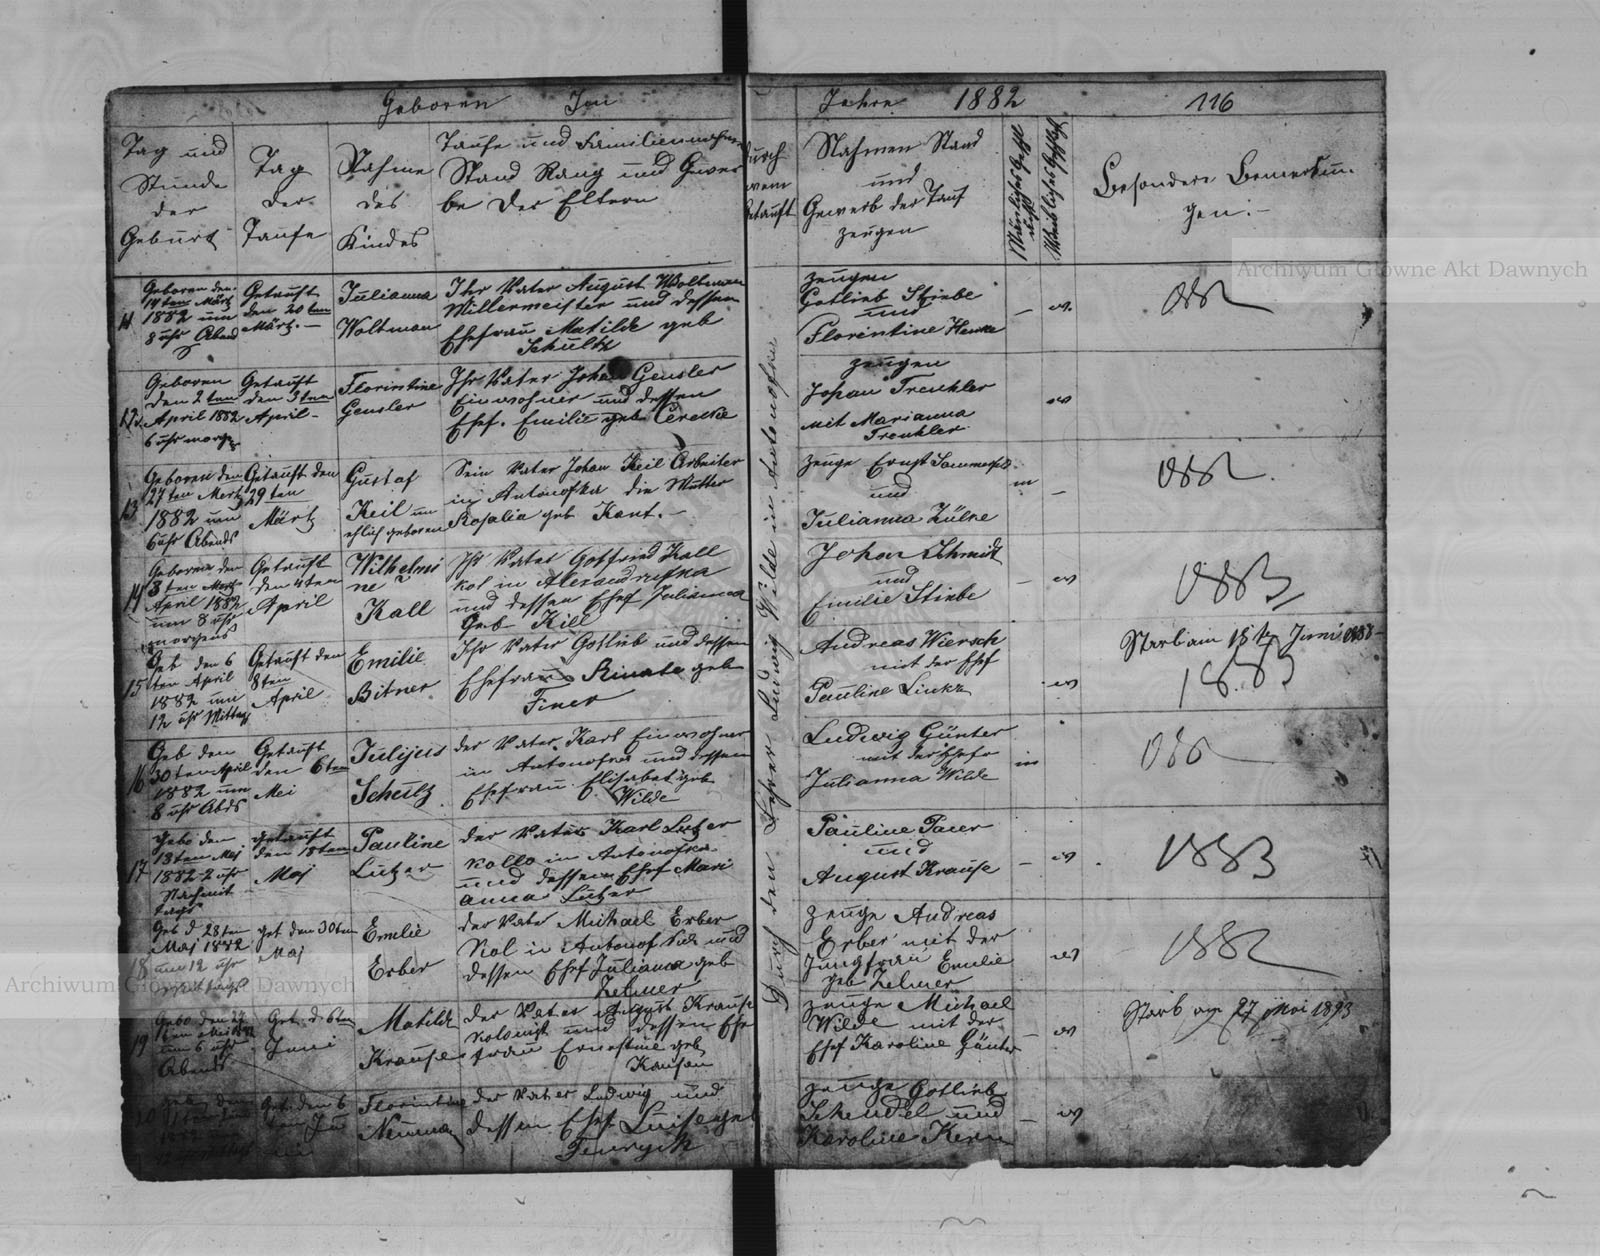 Geboren Im Jahre 1882 116
Tag und
Stunde
der
Geburt
Tag
der
Taufe
Nahme
des
Kindes
Taufe und Familiennahme
Stand Rang und Gewer
be der Eltern
durch
wem
getauft
Nahmen Stand
und
Gewerb der Tauf
zeugen
Besondere Bemerkun
gen:-
Durch den Lehrer Ludwig Wilde in Antonofka
11
Geboren den
14ten Märtz
1882 um
8 uhr Abend
Getauft
den 20ten
Märtz.-
Julianna
Woltman
Ihr Vater August Woltman
Millermeister und dessen
Ehefrau Matilde geb
Schultz
zeugen
Gotlieb Stiebe
und
Florentine Henke
w.
1882
12
Geboren
den 2ten
April 1882
6 uhr morge
Getauft
den 3ten
April-
Florentine
Gensler
Ihr Vater Johan Gensler
Einwohner und dessen
Ehef. Emilie geb Cerecke
zeugen
Johan Trenkler
mit Marianna
Trenkler
w
13
Geboren den
27ten Mertz
1882 um
6 uhr Abends
Getauft den
29ten
Märtz
Gustaf
Keil un
ehlich geboren
Sein Vater Johan Keil Arbeiter
in Antonofka die Mutter
Rosalia geb Kant.-
zeuge Ernst Sommerfeld
und
Julianna Zülke
m
1882
14
Geboren den
3ten
April 1882
um 8 uhr
morgens
Getauft
den 4ten
April
Wilhelmi
ne
Kall
Ihr Vater Gotfried Kall
kol in Alexandrufka
und dessen Ehef Julianna
Geb Kill
Johan Schmidt
und
Emilie Stiebe
w
1883
15
Geb den 6
ten April
1882 um
12 uhr Mittag
Getauft den
8ten
April
Emilie
Bitner
Ihr Vater Gotlieb und dessen
Ehefrau Rinata geb
Finer
Andreas Wiersch
mit der Ehef
Pauline Linkz
w
Starb am 18t Juni
1883
16
Geb den
30ten April
1882 um
8 uhr Abds
Getauft
den 6ten
Mei
Julijus
Schultz
der Vater Karl Einwohner
in Antonofka und dessen
Ehefrau Elisabet geb
Wilde
Ludwig Günter
mit der Ehefr
Julianna Wilde
m
17
Gebo den
13ten Mej
1882 2 uhr
Nachmit
tags
getauft
den 18ten
Mej
Pauline
Lutzer
der Vater Karl Lutzer
kollo in Antonofka
und dessen Ehef Mari
anna Lutzer
Pauline Pauer
und
August Krause
w
1883
18
Geb d 28ten
Maj 1882
um 12 uhr
Mittags
get den 30ten
Maj
Emelie
Erber
der Vater Michael Erber
Kol in Antonofka und
dessen Ehef Julianna geb
Zelmer
zeuge Andreas
Erber mit der
Jungfrau Emelie
geb Zelmer
w
1882
19
Gebo den 27
um 6 uhr
Abends
Get. d 6ten
Juni
Matilde
Krause
der Vater August Krause
Kolonist und dessen Ehe
frau Ernestine geb
Krausen
zeuge Michael
Wilde mit der
Ehef Karoline Günter
w
Starb am 27 Mei 1893
20
get: den 6
Florentine
Neuman
der Vater Ludwig und
dessen Ehef Luise geb
zeuge Gotlieb
Schendel und
Karoline Kern
w
Archiwum Główne Akt Dawnych
Archiwum Główne Akt Dawnych